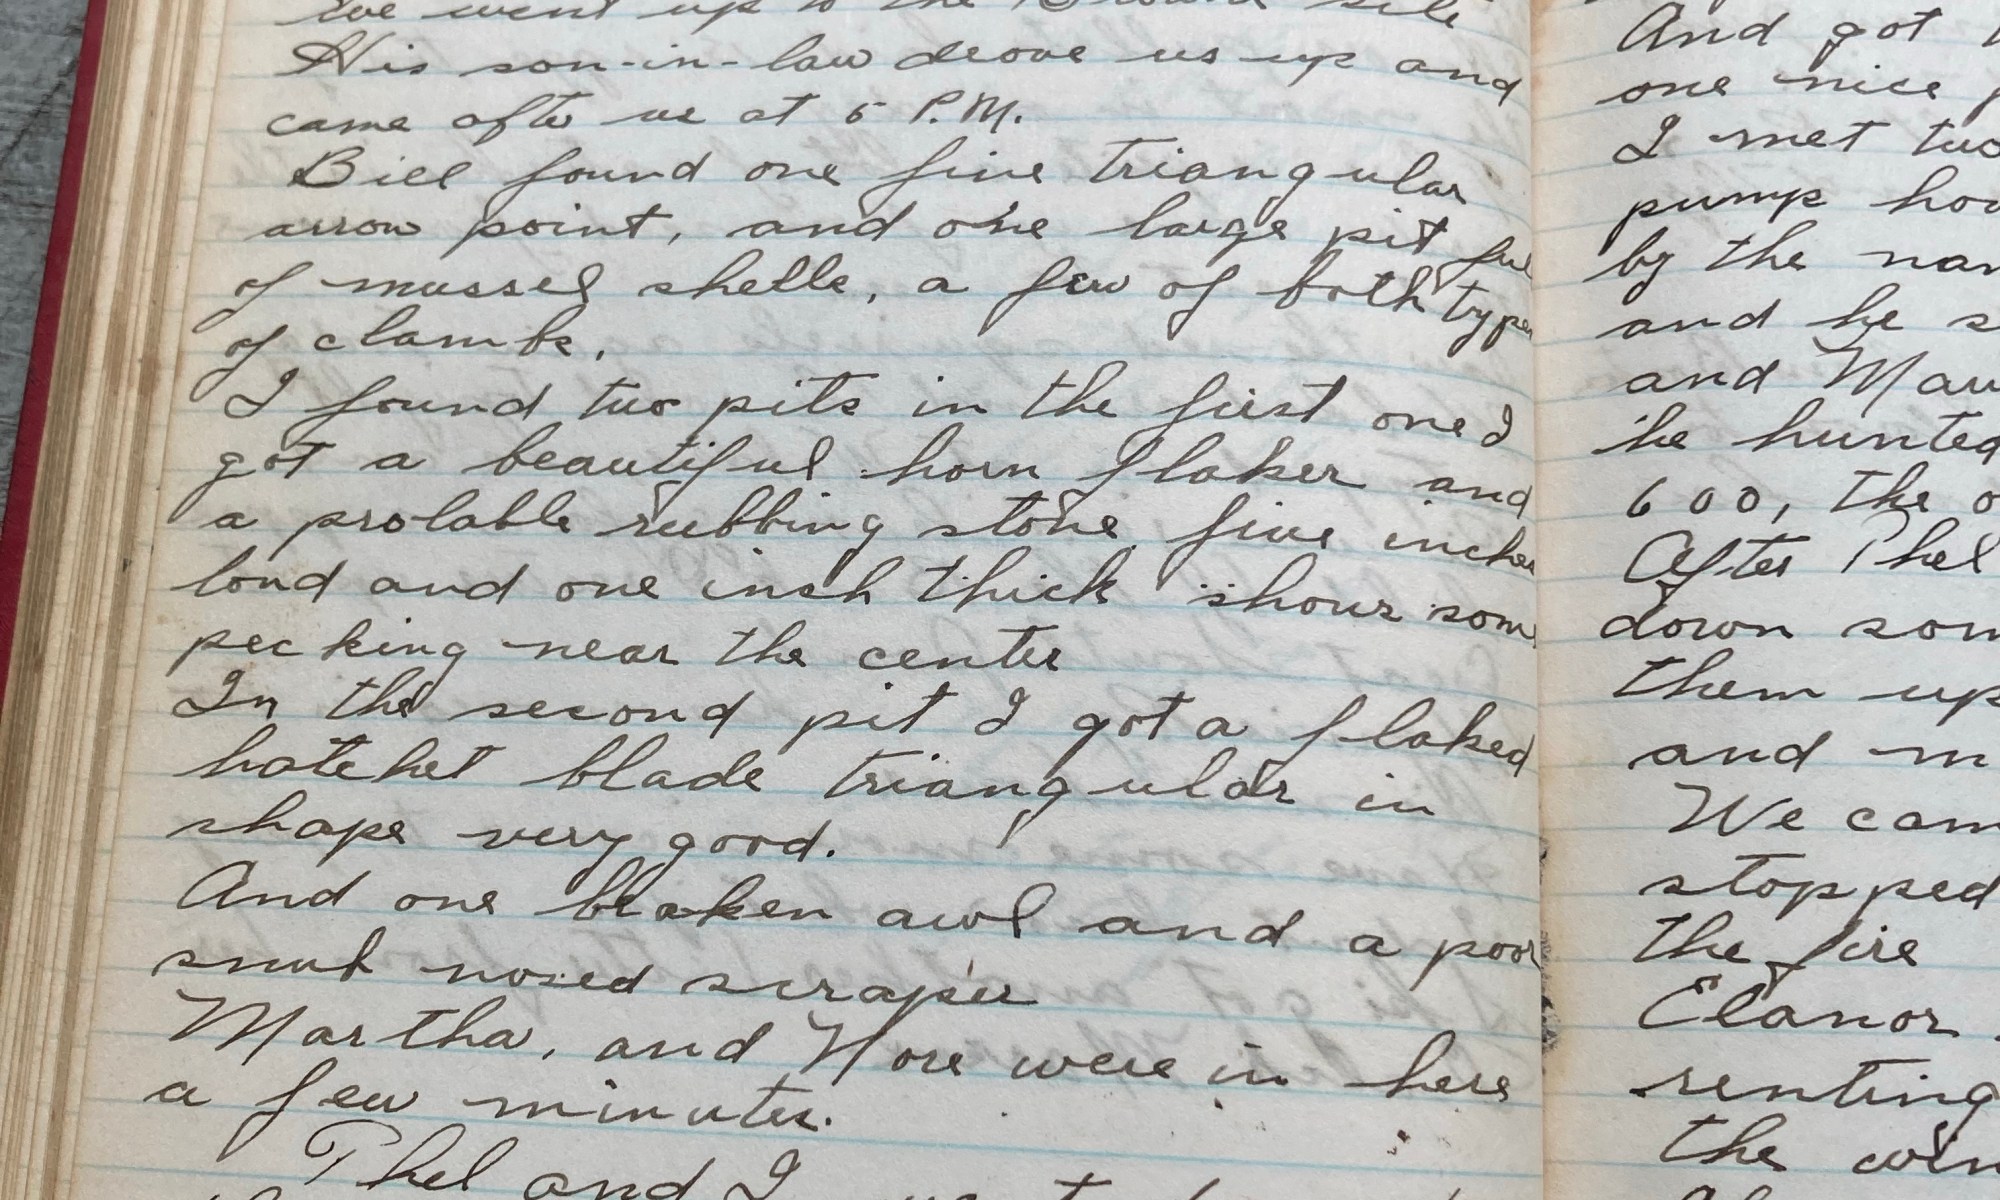 we went up to the Brown site
His son-in-law drove us up and
came after us at 5 P.M.
Bill found one fine triangular
arrow point, and one large pit full
of mussel shells, a few of both types
of clambs.
I found two pits in the first one I
got a beautiful horn flaker and
a prolable rubbing stone five inches
lond and one inch thick shows som
pecking near the center
In the second pit I got a flaked
hatchet blade triangular in
shape very good.
And one broken awl and a poor
snub nosed scraper
Martha, and Nore were in here
a few minutes.
Phel and I
And got
one nice
I met two
pump hou
by the nam
and he s
and Mau
he hunted
600, the o
After Phel
down som
them up
and m
We cam
stopped
the fire
Elanor
renting
the win